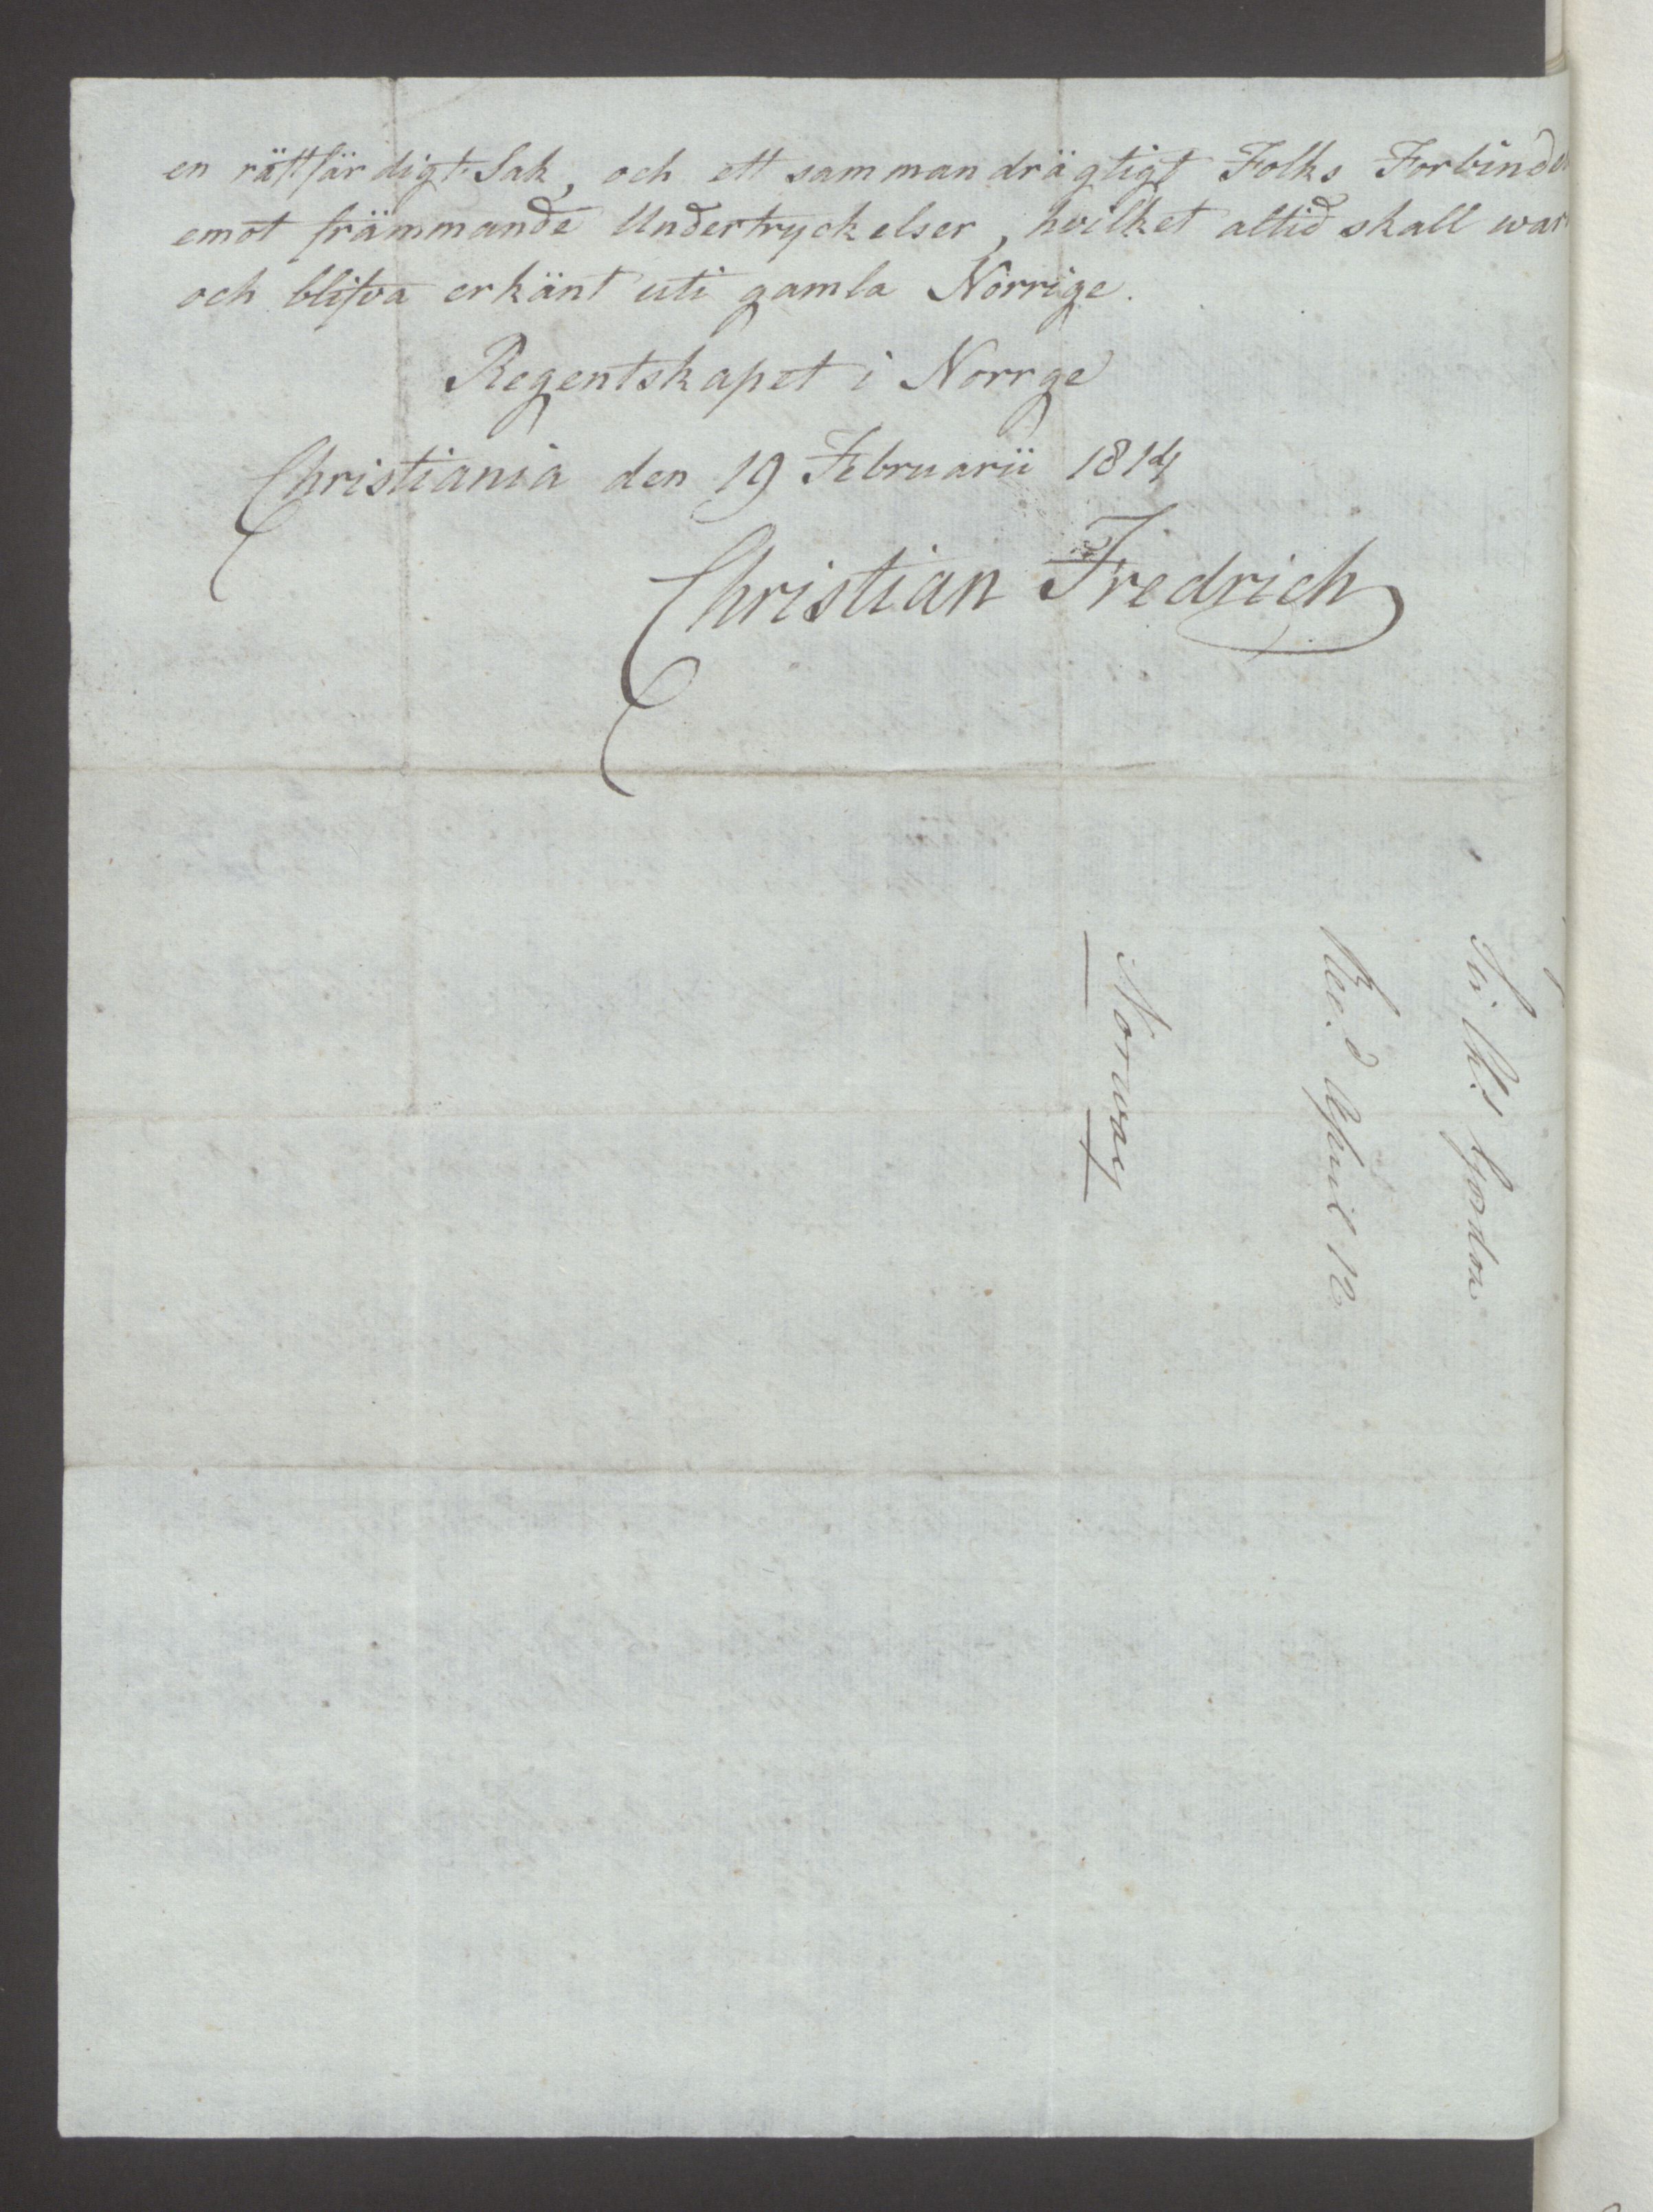 en rättfärdigt Sak, och ett sammandrägtigt Folks Forbinde
emot främmande Undertryckelser, hvilket altid skall war
och blifva erkänt uti gamla Norrige.
Regentskapet i Norrge
Christiania den 19 Februarii 1814
Christian Fredrich
Gordon
Rec.d April 12
Norway